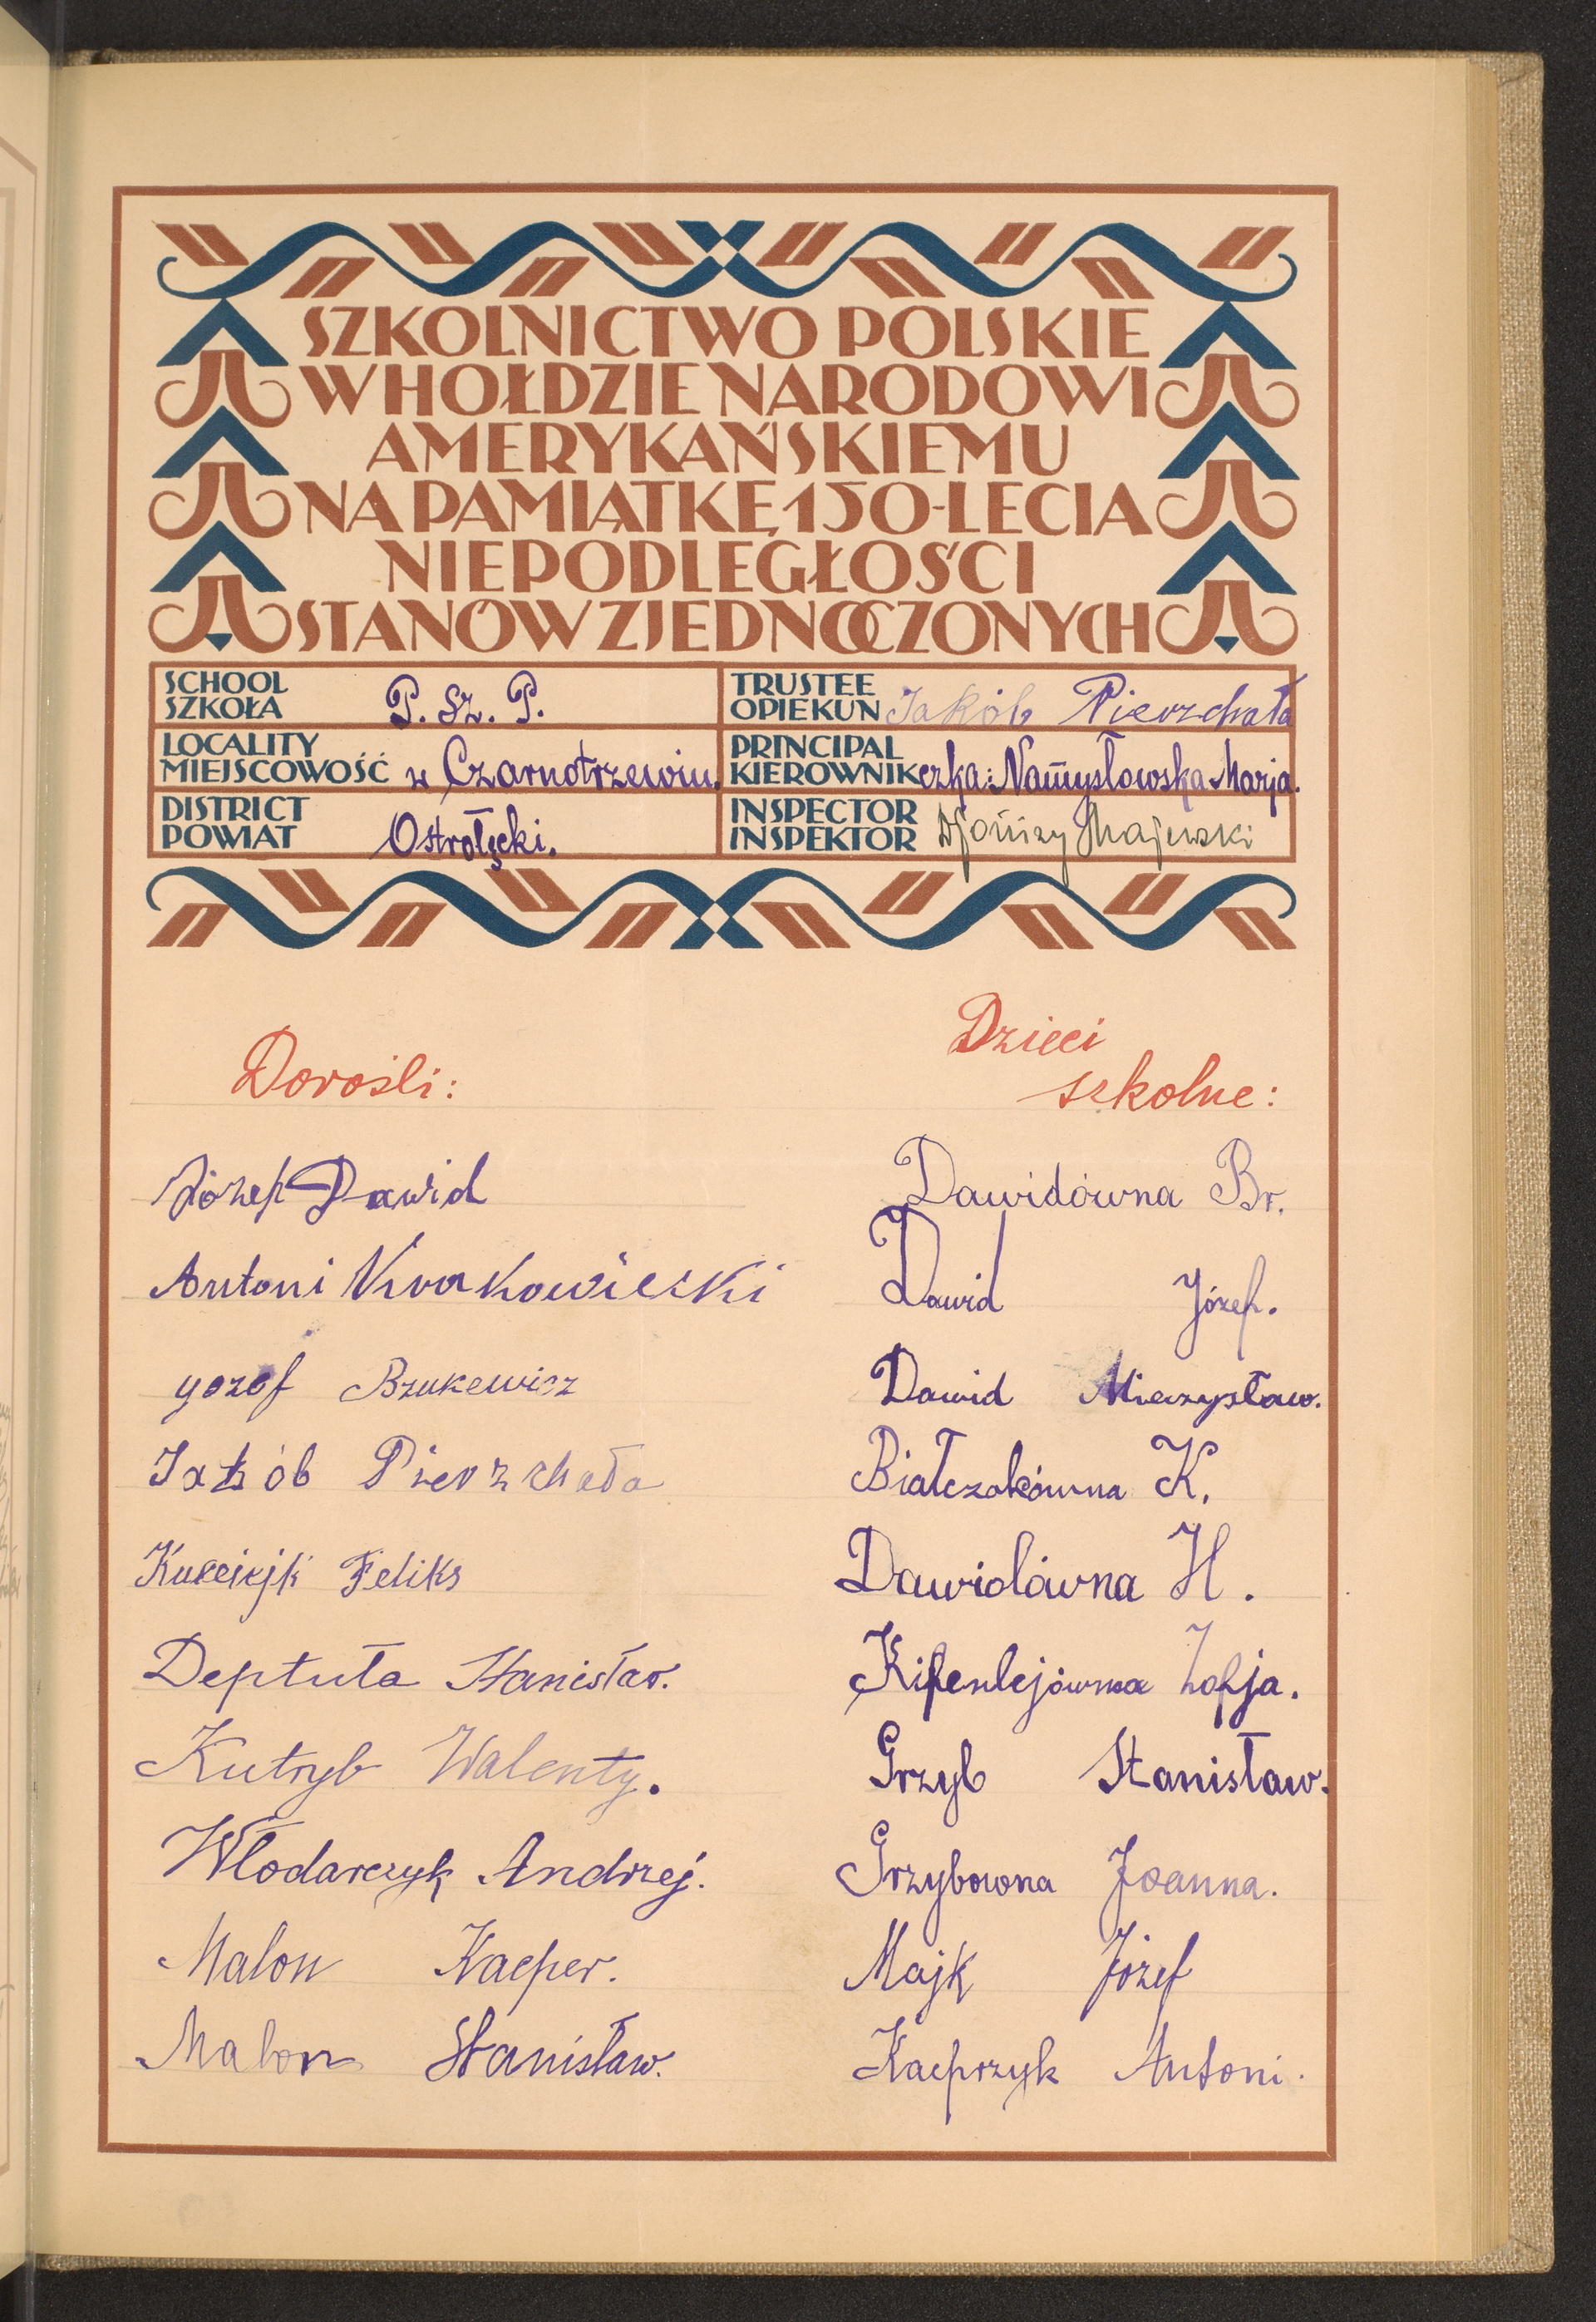 SZKOLNICTWO POLSKIE
W HOŁDZIE NARODOWI
AMERYKAŃSKIEMU
NA PAMIĄTKĘ 150-LECIA
NIEPODLEGŁOŚCI
STANÓW ZJEDNOCZONYCH
SCHOOL
SZKOŁA P. Sz. P.
TRUSTEE
OPIEKUN Jakób Pierzchała
LOCALITY
MIEJSCOWOŚĆ w Czarnotrzewiu.
PRINCIPAL
KIEROWNIKczka: Namysłowska Marja.
DISTRICT
POWIAT Ostrołęcki.
INSPECTOR
INSPEKTOR Majewski
Dorośli:
Józef Dawid
Antoni Krakowiecki
yozef Bzukewicz
Jakób Pierzchała
Feliks
Deptuła Stanisław.
Kutryb Walenty.
Włodarczyk Andrzej.
Malon Kacper.
Malon Stanisław.
Dzieci
szkolne:
Dawidówna Br.
Dawid Józef.
Dawid Mieczysław.
Białczakówna K.
Dawidówna H.
Zofja.
Grzyb Stanisław.
Grzybowna Joanna.
Majk Józef
Kacprzyk Antoni.